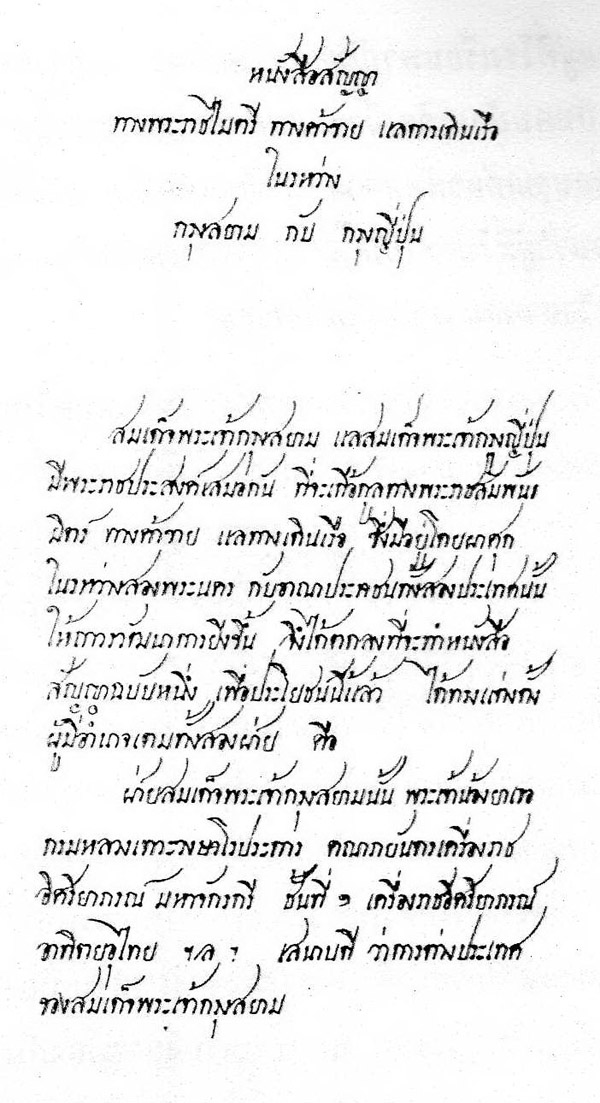 หนังสือสัญญา
ทางพระราชไมตรี ทางค้าขาย แลการเดินเรือ
ในรหว่าง
กรุงสยาม กับ กรุงญี่ปุ่น
สมเด็จพระเจ้ากรุงสยาม แลสมเด็จพระเจ้ากรุงญี่ปุ่น
มีพระราชประสงค์เสมอกัน ที่จะเกื้อกูลทางพระราชสัมพันธ
มิตร์ ทางค้าขาย แลทางเดินเรือ ซึ่งมีอยู่โดยผาศุก
ในรหว่างสองพระนคร กับอาณาประชาชนทั้งสองประเทศนั้น
ให้ถาวรวัฒนาการยิ่งขึ้น จึงได้ตกลงที่จะทำหนังสือ
สัญญาฉบับหนึ่ง เพื่อประโยชน์นี้แล้ว ได้ทรงแต่งตั้ง
ผู้มีอำเภอเตมทั้งสองฝ่าย คือ
ฝ่ายสมเด็จพระเจ้ากรุงสยามนั้น พระเจ้าน้องยาเธอ
กรมหลวงเทวะวงษวโรประการ คณาภยันดรเครื่องราช
อิศริยาภรณ์ มหาจักรกรี ชั้นที่ ๑ เครื่องราชอิศริยาภรณ์
อาทิตยอุไทย ฯลฯ เสนาบดี ว่าการต่างประเทศ
ของสมเด็จพระเจ้ากรุงสยาม